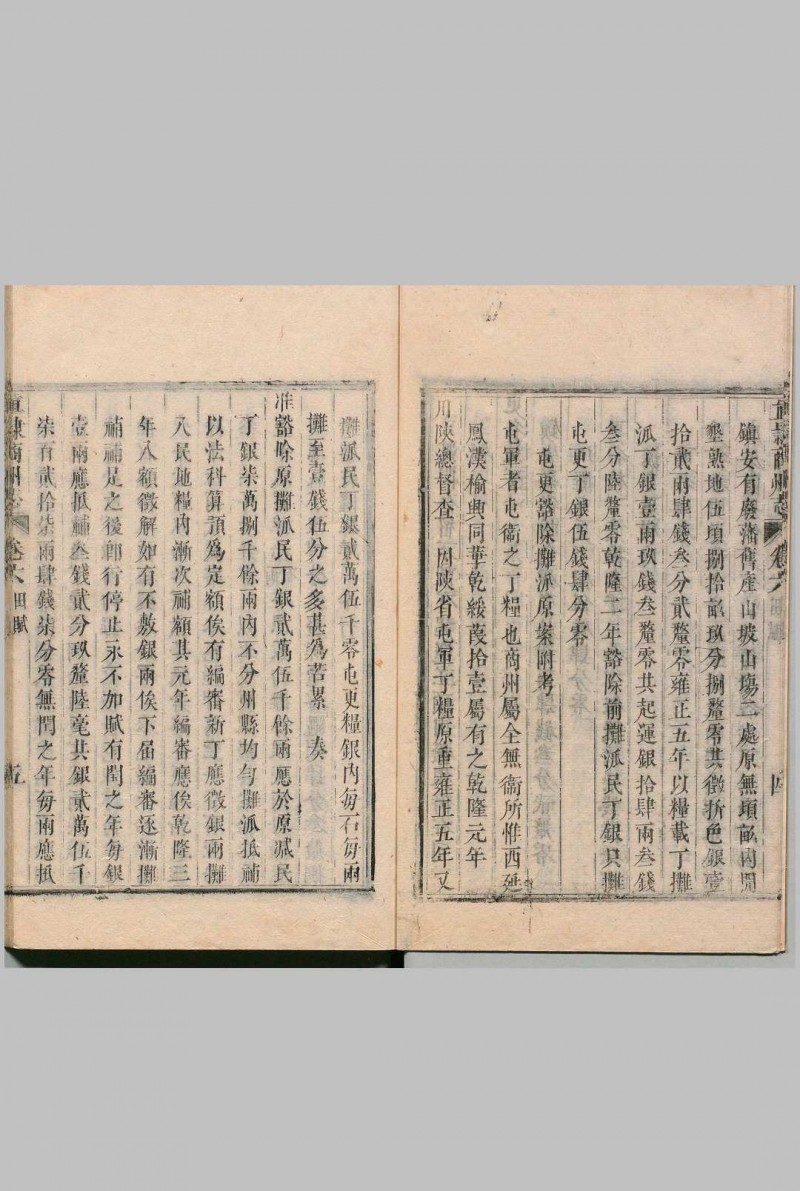 直隸商州志 卷六 田賦 四
鎮安有廢藩舊產山坡山塲二處原無頃畝內開
墾熟地伍頃捌拾畝玖分捌釐零共徵折色銀壹
拾貳兩肆錢叁分貳釐零雍正五年以糧載丁攤
派丁銀壹兩玖錢叁釐零共起運銀拾肆兩叁錢
叁分陸釐零乾隆二年豁除前攤派民丁銀只攤
屯更丁銀伍錢肆分零
屯更豁除攤派原案附考
屯軍者屯衞之丁糧也商州屬全無衞所惟西延
鳳漢榆興同華乾綏葭拾壹屬有之乾隆元年
川陝總督查 因陝省屯軍丁糧原重雍正五年又
攤派民丁銀貳萬伍千零屯更糧銀內每石每兩
攤至壹錢伍分之多甚為苦累 奏
准豁除原攤派民丁銀貳萬伍千餘兩應於原減民
丁銀柒萬捌千餘兩內不分州縣均勻攤派抵補
以法科算預為定額俟有編審新丁應徵銀兩攤
入民地糧內漸次補額其元年編審應俟乾隆三
年入額徵解如有不敷銀兩俟下届編審逐漸攤
補補足之後即行停止永不加賦有閏之年每銀
壹兩應抵補叁錢貳分玖釐陸毫共銀貳萬伍千
柒百貳拾柒兩肆錢柒分零無閏之年每兩應抵
直隸商州志 卷六 田賦 五